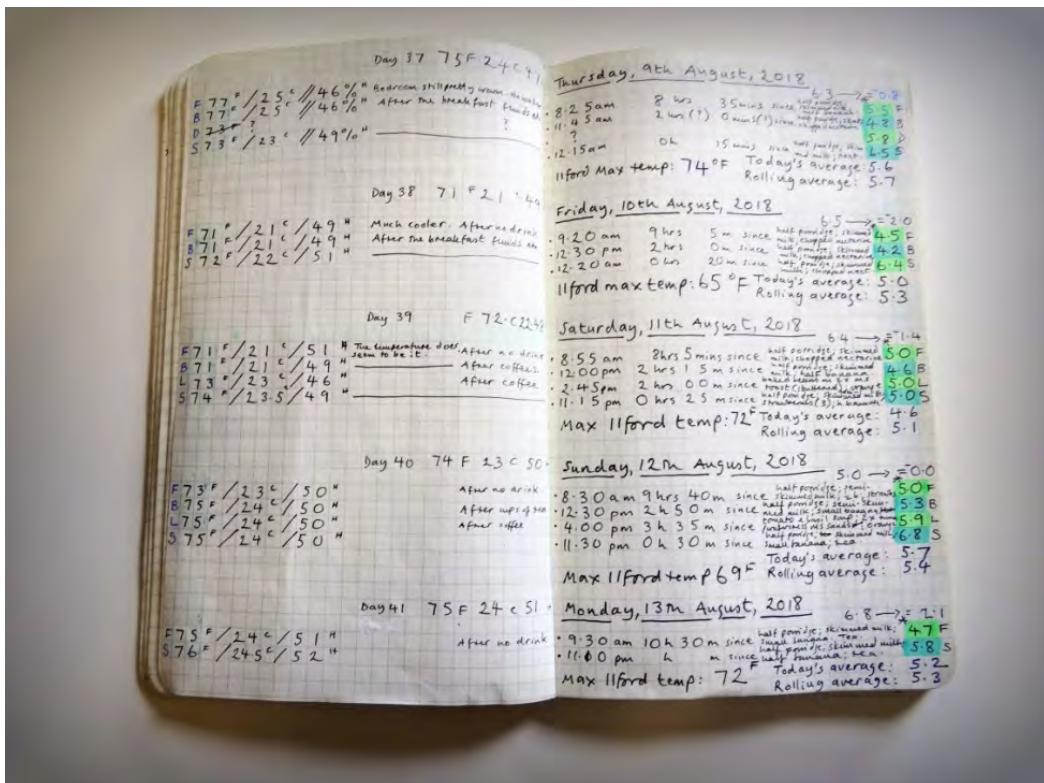 Day 37 75F 24C 47
F 77F/25C//46%H Bedroom still pretty warm
B 77F/25C//46%H After the breakfast fluids
D 73F ?
S 73F/23C//49%H
Day 38 71 F 21 C 49
F 71F/21C/49H Much cooler. After no drink
B 71F/21C/49H After the breakfast fluids
S 72F/22C/51H
Day 39 F 72.C22.48
F 71F/21C/51H The temperature does seem to be it. After no drink
B 71F/21C/49H After coffees
L 73F/23C/46H After coffee
S 74F/23.5/49H
Day 40 74 F 23 C 50
F 73F/23C/50H After no drink
B 75F/24C/50H After cups of tea
L 75F/24C/50H After coffee
S 75F/24C/50H
Day 41 75F 24 C 51
F 75F/24C/51H After no drink
S 76F/24.5C/52H
Thursday, 9th August, 2018
6.3 → = -0.8
8.25am 8 hrs 35mins since half porridge, skimmed milk, half banana 5.5 F
11.45am 2 hrs(?) 0 mins(?) since half porridge, chopped nectarine 4.8 B
? 5.8 D
12.15am 0h 15 mins since half porridge, skimmed milk, 6.5 S
Ilford Max temp: 74°F Today's average: 5.6
Rolling average: 5.7
Friday, 10th August, 2018
6.5 → = -2.0
9.20am 9hrs 5m since half porridge, skimmed milk, chopped nectarine 4.5 F
12.30pm 2 hrs 0m since half porridge, skimmed milk, chopped nectarine 4.2 B
12.20am 0 hrs 20m since half porridge, skimmed milk, chopped nect 6.4 S
Ilford max temp: 65°F Today's average: 5.0
Rolling average: 5.3
Saturday, 11th August, 2018
6.4 → = -1.4
8.55am 8hrs 5mins since half porridge, skimmed milk, chopped nectarine 5.0 F
12.00pm 2 hrs 15m since half porridge, skimmed milk, half banana 4.6 B
2.45pm 2 hrs 00m since baked beans on 2x toast (buttered), orange 5.0 L
11.15pm 0 hrs 25m since half porridge, skimmed milk, strawberries (3), 5.0 S
Max Ilford temp: 72F Today's average: 4.6
Rolling average: 5.1
Sunday, 12th August, 2018
5.0 → = 0.0
8.30am 9 hrs 40m since half porridge, semi-skimmed milk, 5.0 F
12.30pm 2h 50m since half porridge, semi-skimmed milk, small banana 5.3 B
4.00pm 3h 35m since tomato & basil soup, 2x 5.9 L
11.30pm 0h 30m since half porridge, skimmed milk, small banana, tea 6.8 S
Today's average: 5.7
Max Ilford temp 69F Rolling average: 5.4
Monday, 13th August, 2018
6.8 → = -2.1
9.30am 10h 30m since half porridge, skimmed milk, small banana. Tea. 4.7 F
11.00pm h m since half porridge, skimmed milk, half banana, tea. 5.8 S
Max Ilford temp: 72F Today's average: 5.2
Rolling average: 5.3